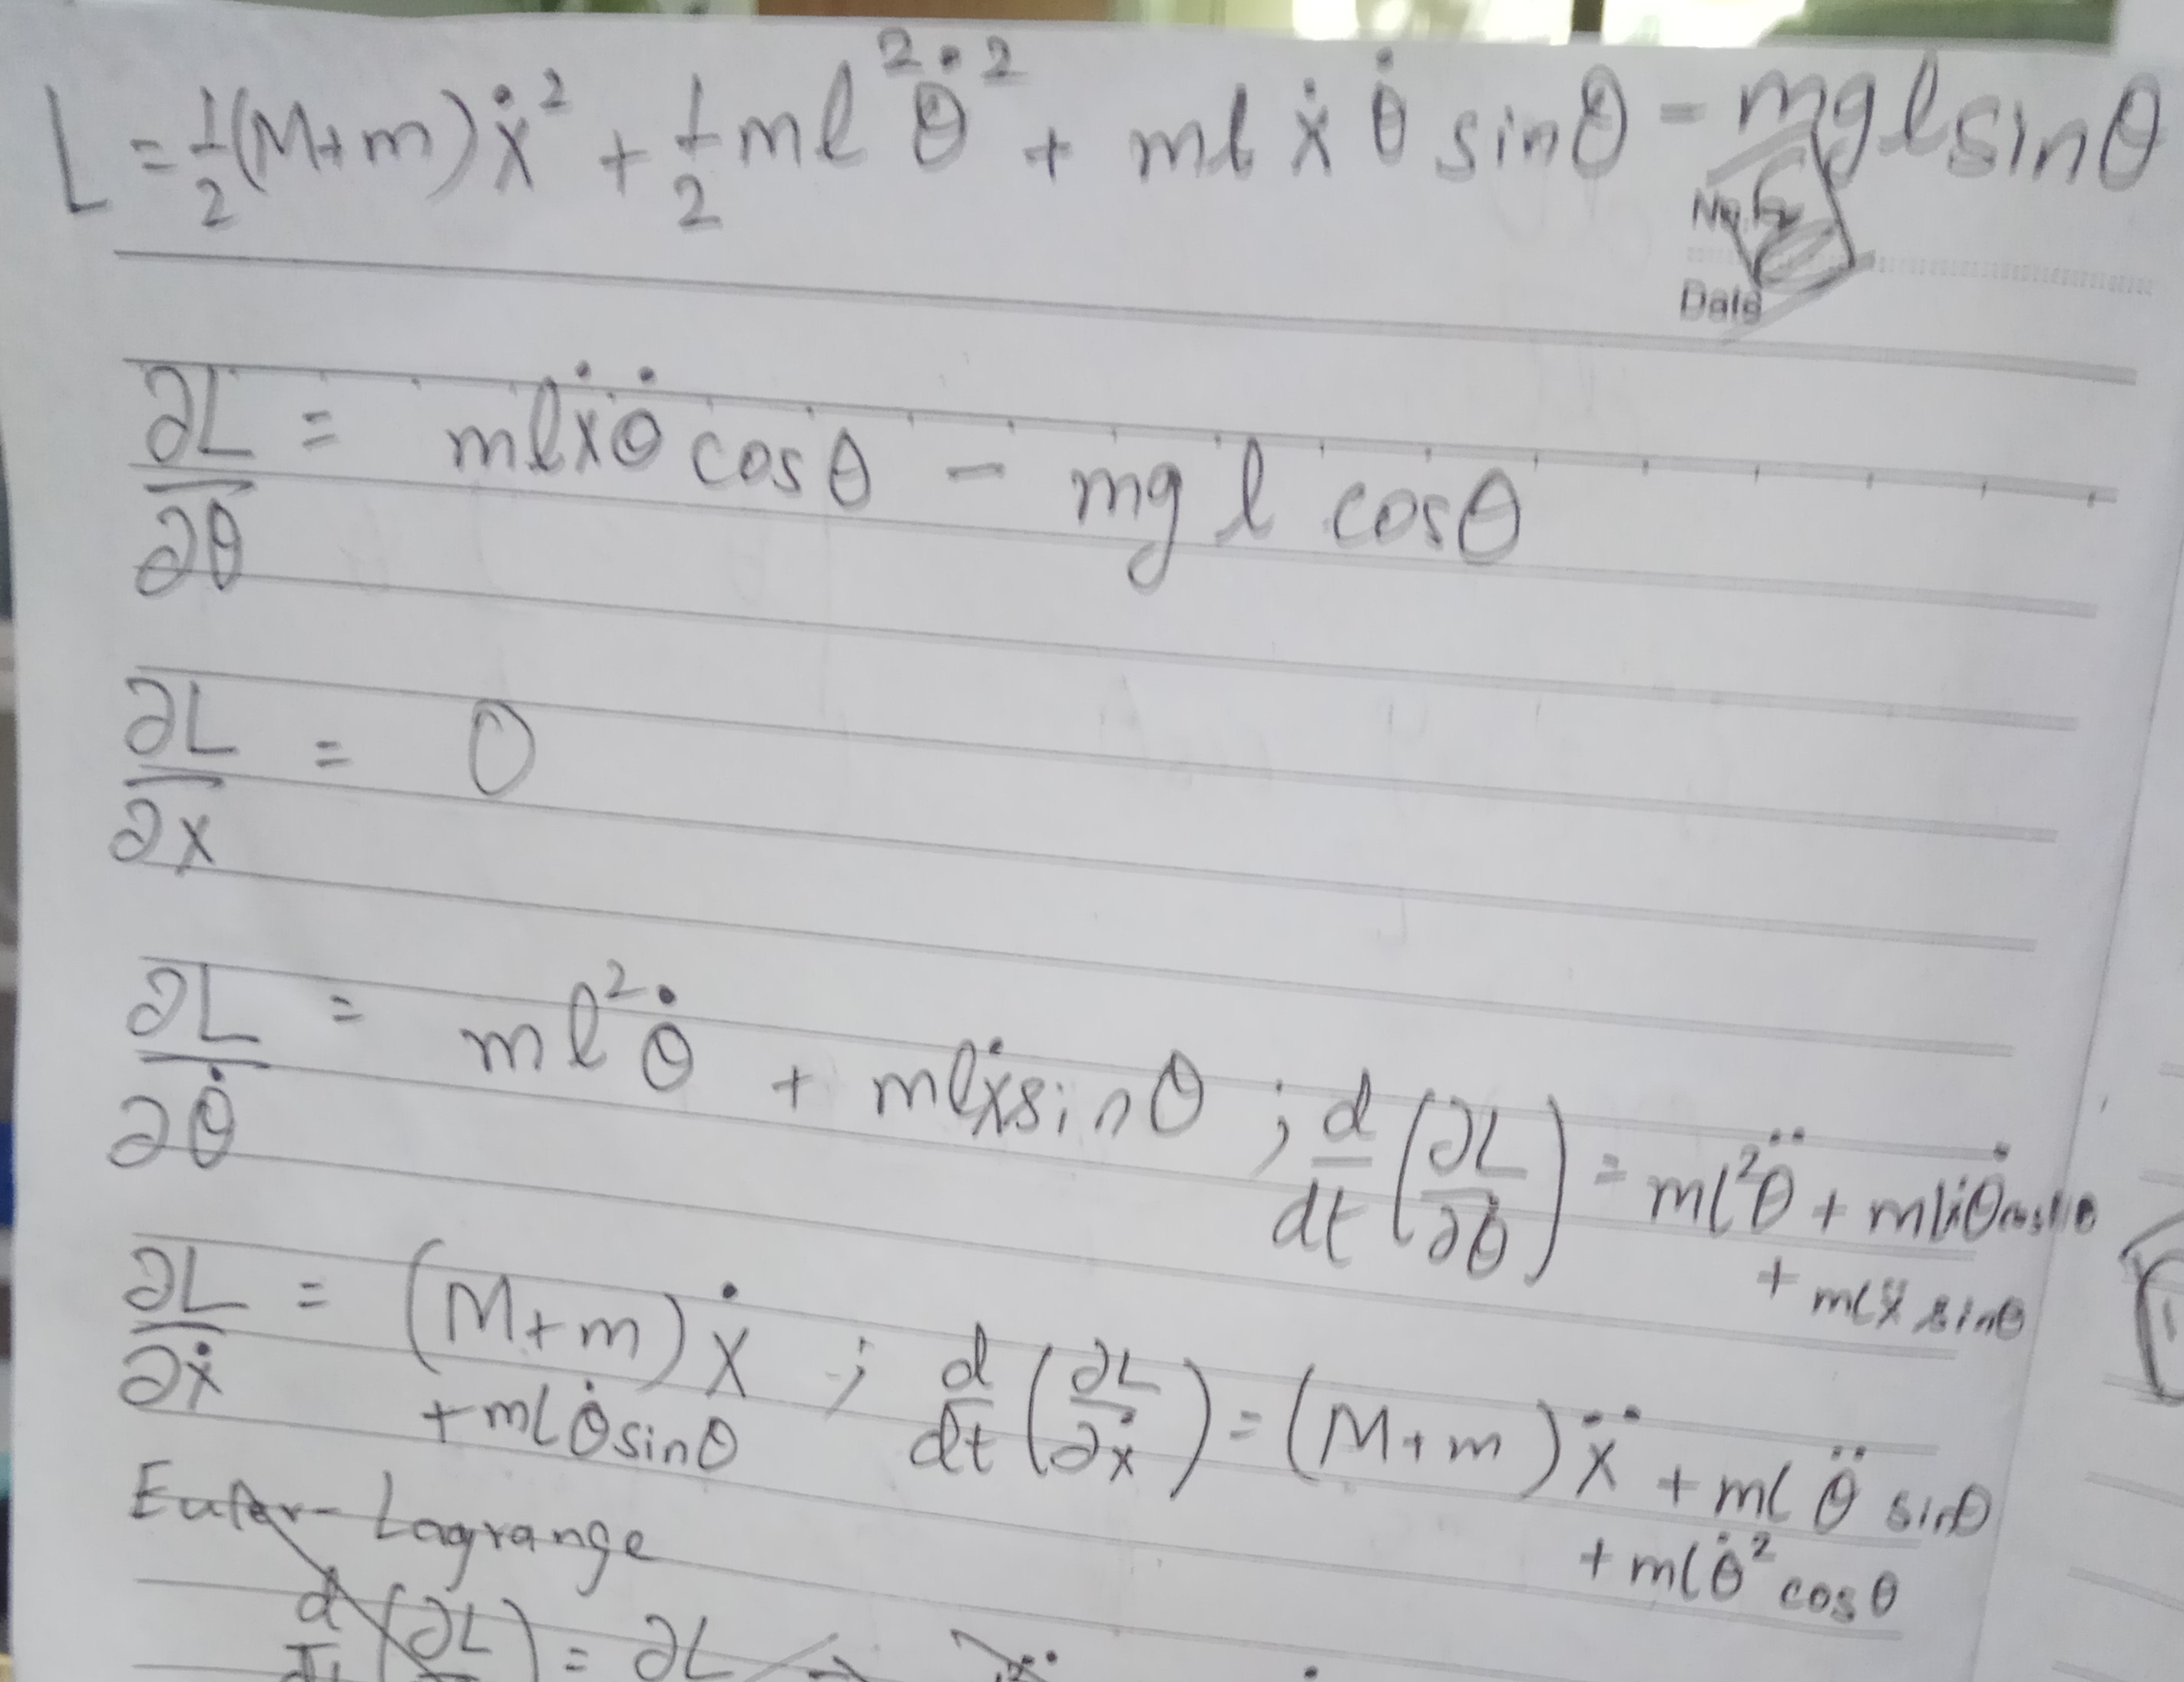 L = 1/2 (M+m) ẋ² + 1/2 ml² θ̇² + ml ẋ θ̇ sinθ - mg l sinθ
No.
Date
∂L/∂θ = mlẋθ̇ cosθ - mg l cosθ
∂L/∂x = 0
∂L/∂θ̇ = ml²θ̇ + mlẋsinθ ; d/dt (∂L/∂θ̇) = ml²θ̈ + mlẋθ̇cosθ
+ mlẍ sinθ
∂L/∂ẋ = (M+m) ẋ ; d/dt (∂L/∂ẋ) = (M+m) ẍ + ml θ̈ sinθ
+ mlθ̇sinθ
+ mlθ̇² cosθ
Euler-Lagrange
d/dt (∂L = ∂L